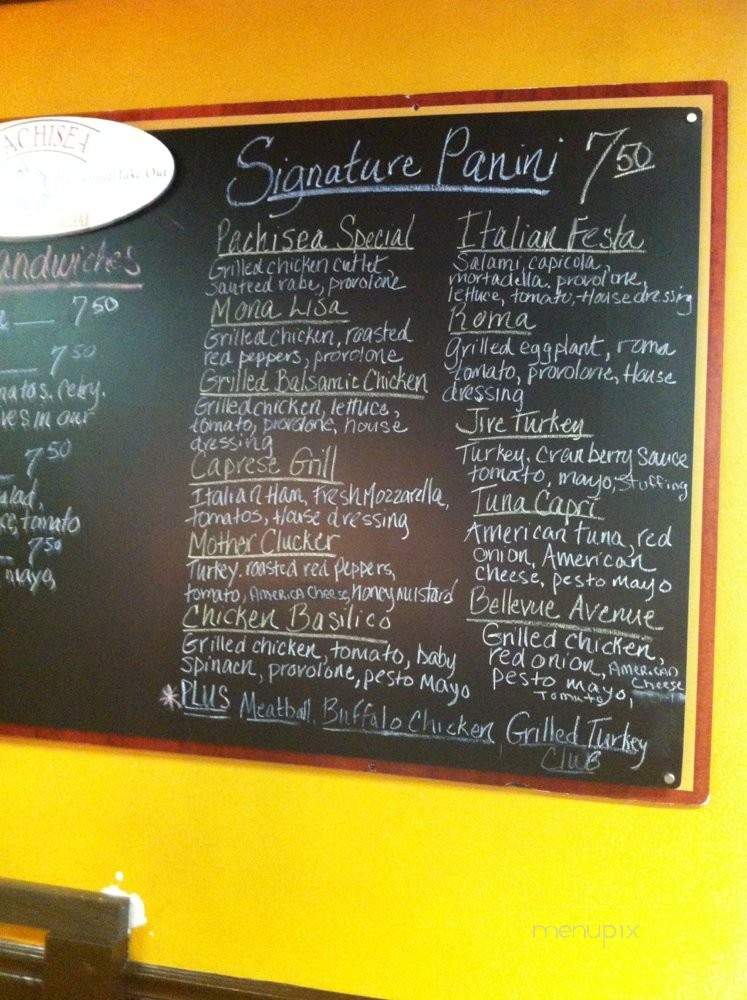 ACHISEA
Take Out
andwiches
7 50
7 50
7 50
alad,
tomato
7 50
mayo,
Signature Panini 7 50
Pachisea Special
Grilled chicken cutlet,
sauteed rabe, provolone
Mona Lisa
Grilled chicken, roasted
red peppers, provolone
Grilled Balsamic Chicken
Grilled chicken, lettuce,
tomato, provolone, house
dressing
Caprese Grill
Italian Ham, Fresh Mozzarella,
tomatos, House dressing
Mother Clucker
Turkey, roasted red peppers,
tomato, America Cheese, honey mustard
Chicken Basilico
Grilled chicken, tomato, baby
spinach, provolone, pesto Mayo
Italian Festa
Salami, capicola,
mortadella, provolone,
lettuce, tomato, House dressing
Roma
Grilled eggplant, roma
tomato, provolone, House
dressing
Jive Turkey
Turkey, cranberry sauce
tomato, mayo, Stuffing
Tuna Capri
American tuna, red
onion, American
cheese, pesto mayo
Bellevue Avenue
Grilled chicken,
red onion, American Cheese
pesto mayo,
Tomato,
*PLUS Meatball, Buffalo Chicken, Grilled Turkey
Club
menupix